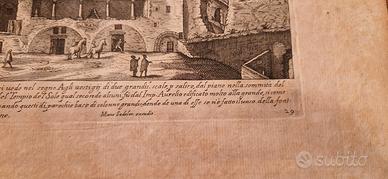 si uedo nel segno A gli uestigij di due grandiss. scale p salire, dal piano nella sommità del
del Tempio del Sole qual secondo alcuni fu dal Imp. Aurelio edificato molto alla grande, si come
ando questi di parechie base di colonne grandi, donde de una di esse ne fatto il uaso della font
ne.
Marco Sadeler excudit
29
subito